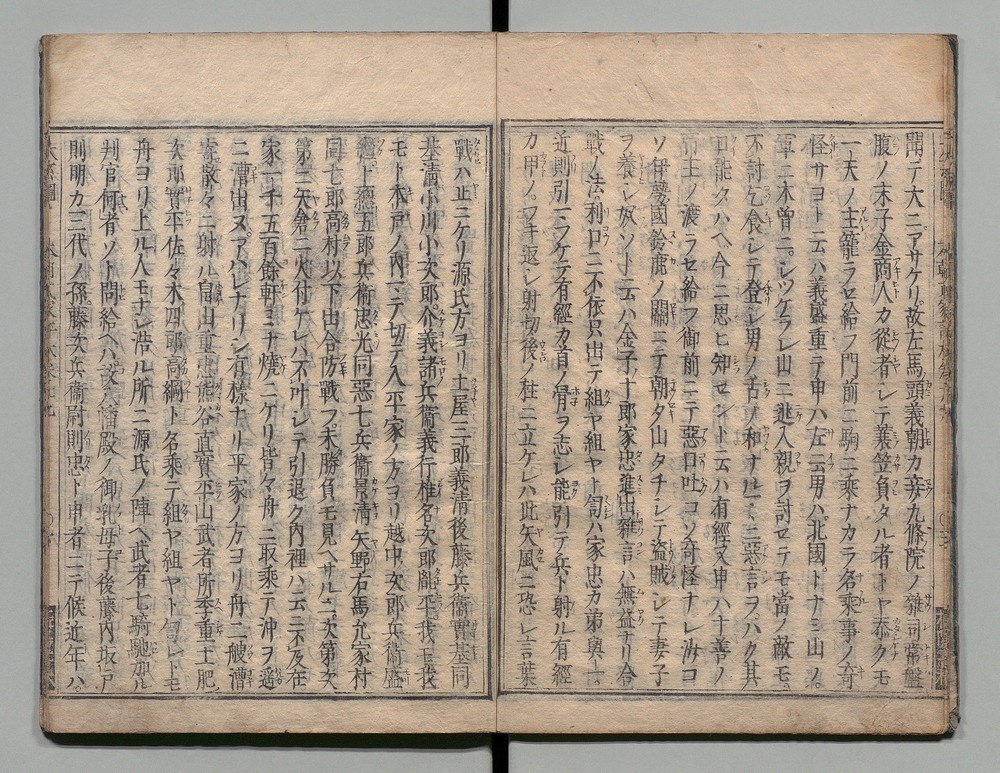 聞テ大ニアサケリ故左馬頭義朝カ妾九條院ノ雜司常盤
腹ノ末子金商人カ從者シテ蓑笠負タル者トヤ忝クモ
一天ノ主籠ラセ給フ門前ニ駒ニ乘ナカラ名乘事ノ奇
怪サヨト云ハ義盛重テ申ハ左云男ハ北國トナミ山ノ
軍ニ木曾ニシツケラレ山ニ迯入親ヲ討セテモ當ノ敵モ
不討乞食シテ登シ男ノ舌ノ和ナルマヽニ惡言ヲハク其
口能タハヘ今ニ思ヒ知セント云ハ有經又申ハ十善ノ
帝王ノ渡ラセ給フ御前ニテ惡口吐コソ奇怪ナレ汝コ
ソ伊勢國鈴鹿ノ關ニテ朝夕山タチシテ盗賊シテ妻子
ヲ養シ奴ソト云ハ金子十郎家忠進出雜言ハ無益ナリ合
戰ノ法ハ利口ニ不依只出テ組ヤ組ヤト訇ハ家忠カ弟與一
近則引マウケテ有經カ首ノ骨ヲ志シ能引テ兵ト射ル有經
カ甲ノフキ返シ射切後ノ柱ニ立ケレハ此矢風ニ恐レ言葉
戰ハ止ニケリ源氏方ヨリ土屋三郎義淸後藤兵衞實基同
基淸小川小次郎介義諸兵衞義行椎名次郎胤平我モ我
モト木戸ノ内マテ切テ入平家ノ方ヨリ越中次郎兵衞盛
繼上總五郎兵衞忠光同惡七兵衞景淸矢野右馬允家村
同七郎高村以下出合防戰フ未勝負モ見ヘサルニ次第
第ニ矢倉ニ火付ケレハ不叶シテ引退ク内裡ハ云ニ不及在
家一千五百餘軒ミナ燒ニケリ皆々舟ニ取乘テ沖ヲ遥
ニ漕出ヌアハレナリシ有樣ナリ平家ノ方ヨリ舟二艘漕
寄散々ニ射ル畠山重忠熊谷直實平山武者所季重土肥
次郎實平佐々木四郎高綱ト名乘テ組ヤ組ヤト訇レトモ
舟ヨリ上ル人モナシ浩ル所ニ源氏ノ陣ヘ武者七騎馳加ル
判官何者ソト問給ヘハ故八幡殿ノ御乳母子後藤内坂戸
則明カ三代ノ孫藤次兵衞尉則忠ト申者ニテ候近年ハ